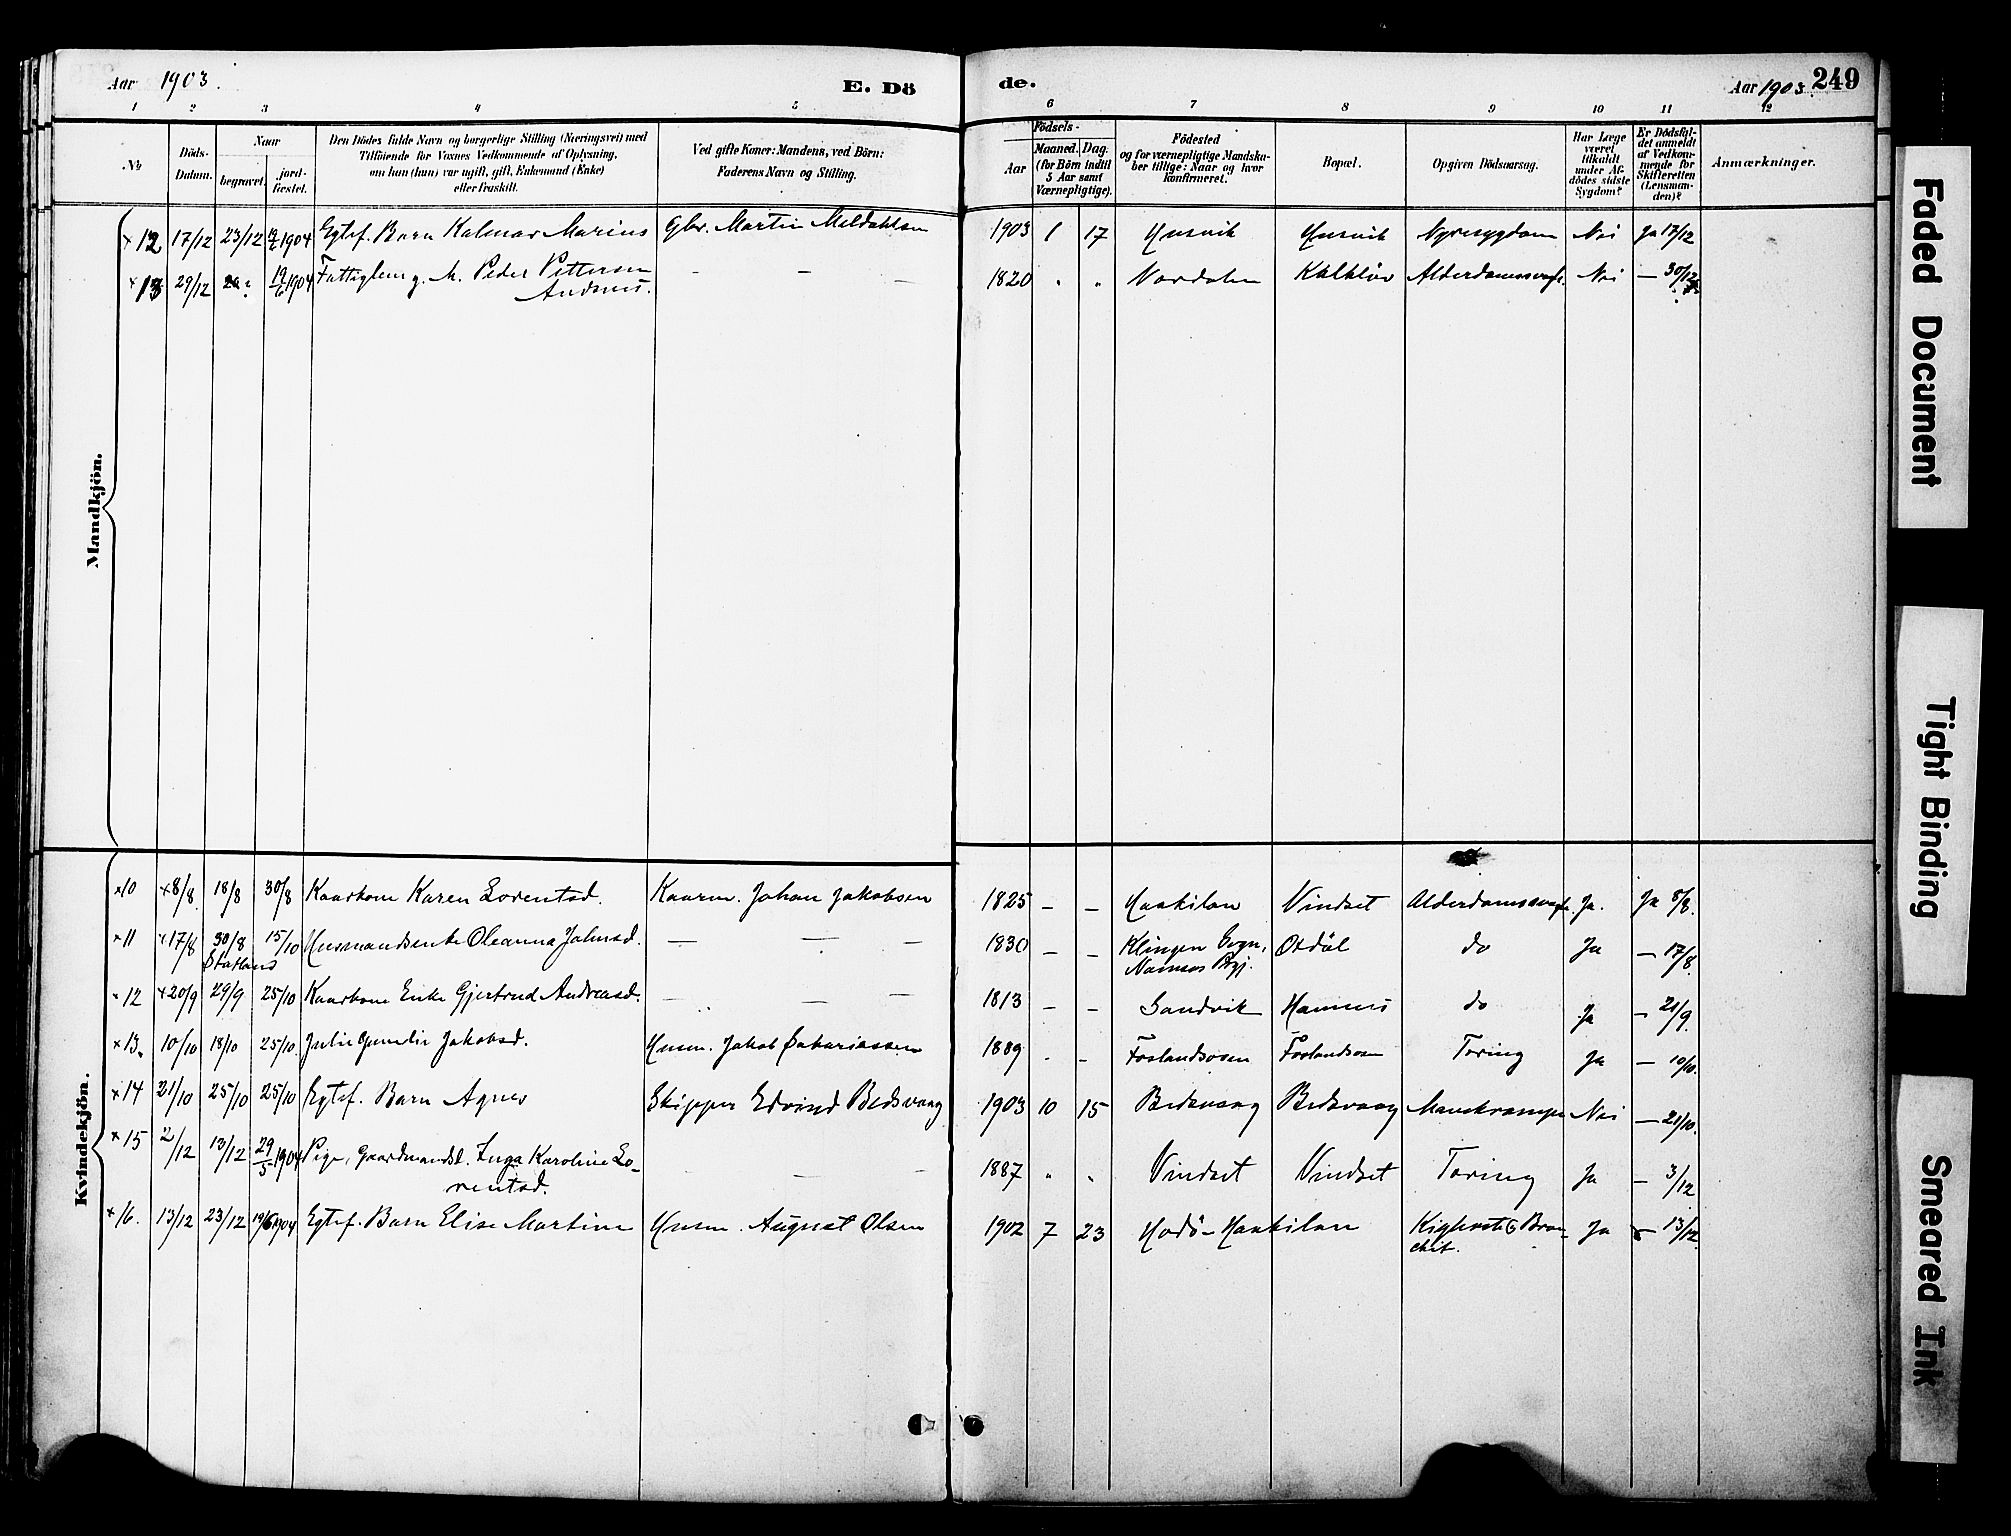 Aar 1903.
E. Dö
de.
Aar 1903.
249
1 2 3 4 5 6 7 8 9 10 11 12
No
Döds-Datum.
Naar
begravet.
jord-fæstet.
Den Dödes fulde Navn og borgerlige Stilling (Næringsvei) med
Tilföiende for Voxnes Vedkommende af Oplysning,
om hun (han) var ugift, gift, Enkemand (Enke)
eller fraskilt.
Ved gifte Koner: Mandens, ved Börn:
Faderens Navn og Stilling.
Födsels-
Aar
Maaned. Dag.
(for Börn indtil
5 Aar samt
Værnepligtige).
Födested
og for værnepligtige Mandska-
ber tillige: Naar og hvor
konfirmeret.
Bopæl.
Opgiven Dödsaarsag.
Har Læge
været
tilkaldt
under Af-
dödes sidste
Sygdom?
Er Dödsfal-
det anmeldt
af Vedkom-
mende for
Skifteretten
(Lensman-
den)?
Anmærkninger.
Mandkjön.
×12 17/12 23/12 1904 Egtef. Barn Kalmar Marius Gbr. Martin Meldahlsen 1903 1 17 Husvik Husvik Nyresygdom Nei Ja 17/12
×13 29/12 1904 Fattiglem g. M. Peder Pettersen — — 1820 " " Vordalen Kalklöv Alderdomssvagh. Nei — 30/12
Andsnes.
Kvindekjön.
×10 ×8/8 18/8 30/8 Kaarkone Karen Lorentsd. Kaarm. Johan Jakobsen 1825 — — Haakilan Vindset Alderdomssvagh. Ja. Ja 8/8.
×11 ×17/8 30/8 15/10 Husmandsenke Oleanna Johnsd. — — — 1830 — — Klingen Sogn, Otdöl do Ja — 17/8
Statland
Namsos Prgj.
×12 ×20/9 29/9 25/10 Kaarkone Enke Gjertrud Andreasd. — — — 1813 — — Sandvik Hamnes do Ja — 21/9.
×13. 10/10 18/10 25/10. Julie Gunelie Jakobsd. Husm. Jakob Sakariassen 1889 - - Foslandsosen Foslandsosen Tæring Ja — 10/10.
×14 21/10 25/10 25/10 Egtef. Barn Agnes Skipper Edvind Bedsvaag 1903 10 15 Bedsvaag Bedsvaag Mavekrampe Nei — 21/10.
×15 2/12 13/12 29/5 1904 Pige, Gaardmandsd. Inga Karoline Lo- — — 1887 " " Vindset Vindset Tæring Ja — 3/12
rentsd.
×16. 13/12 23/12 19/6 1904 Egtef. Barn Elise Martine Husm. August Olsen 1902 7 23 Hodö-Haakilan Kighoste & Bron-
chit. Ja 13/12.
Faded Document
Tight Binding
Smeared Ink